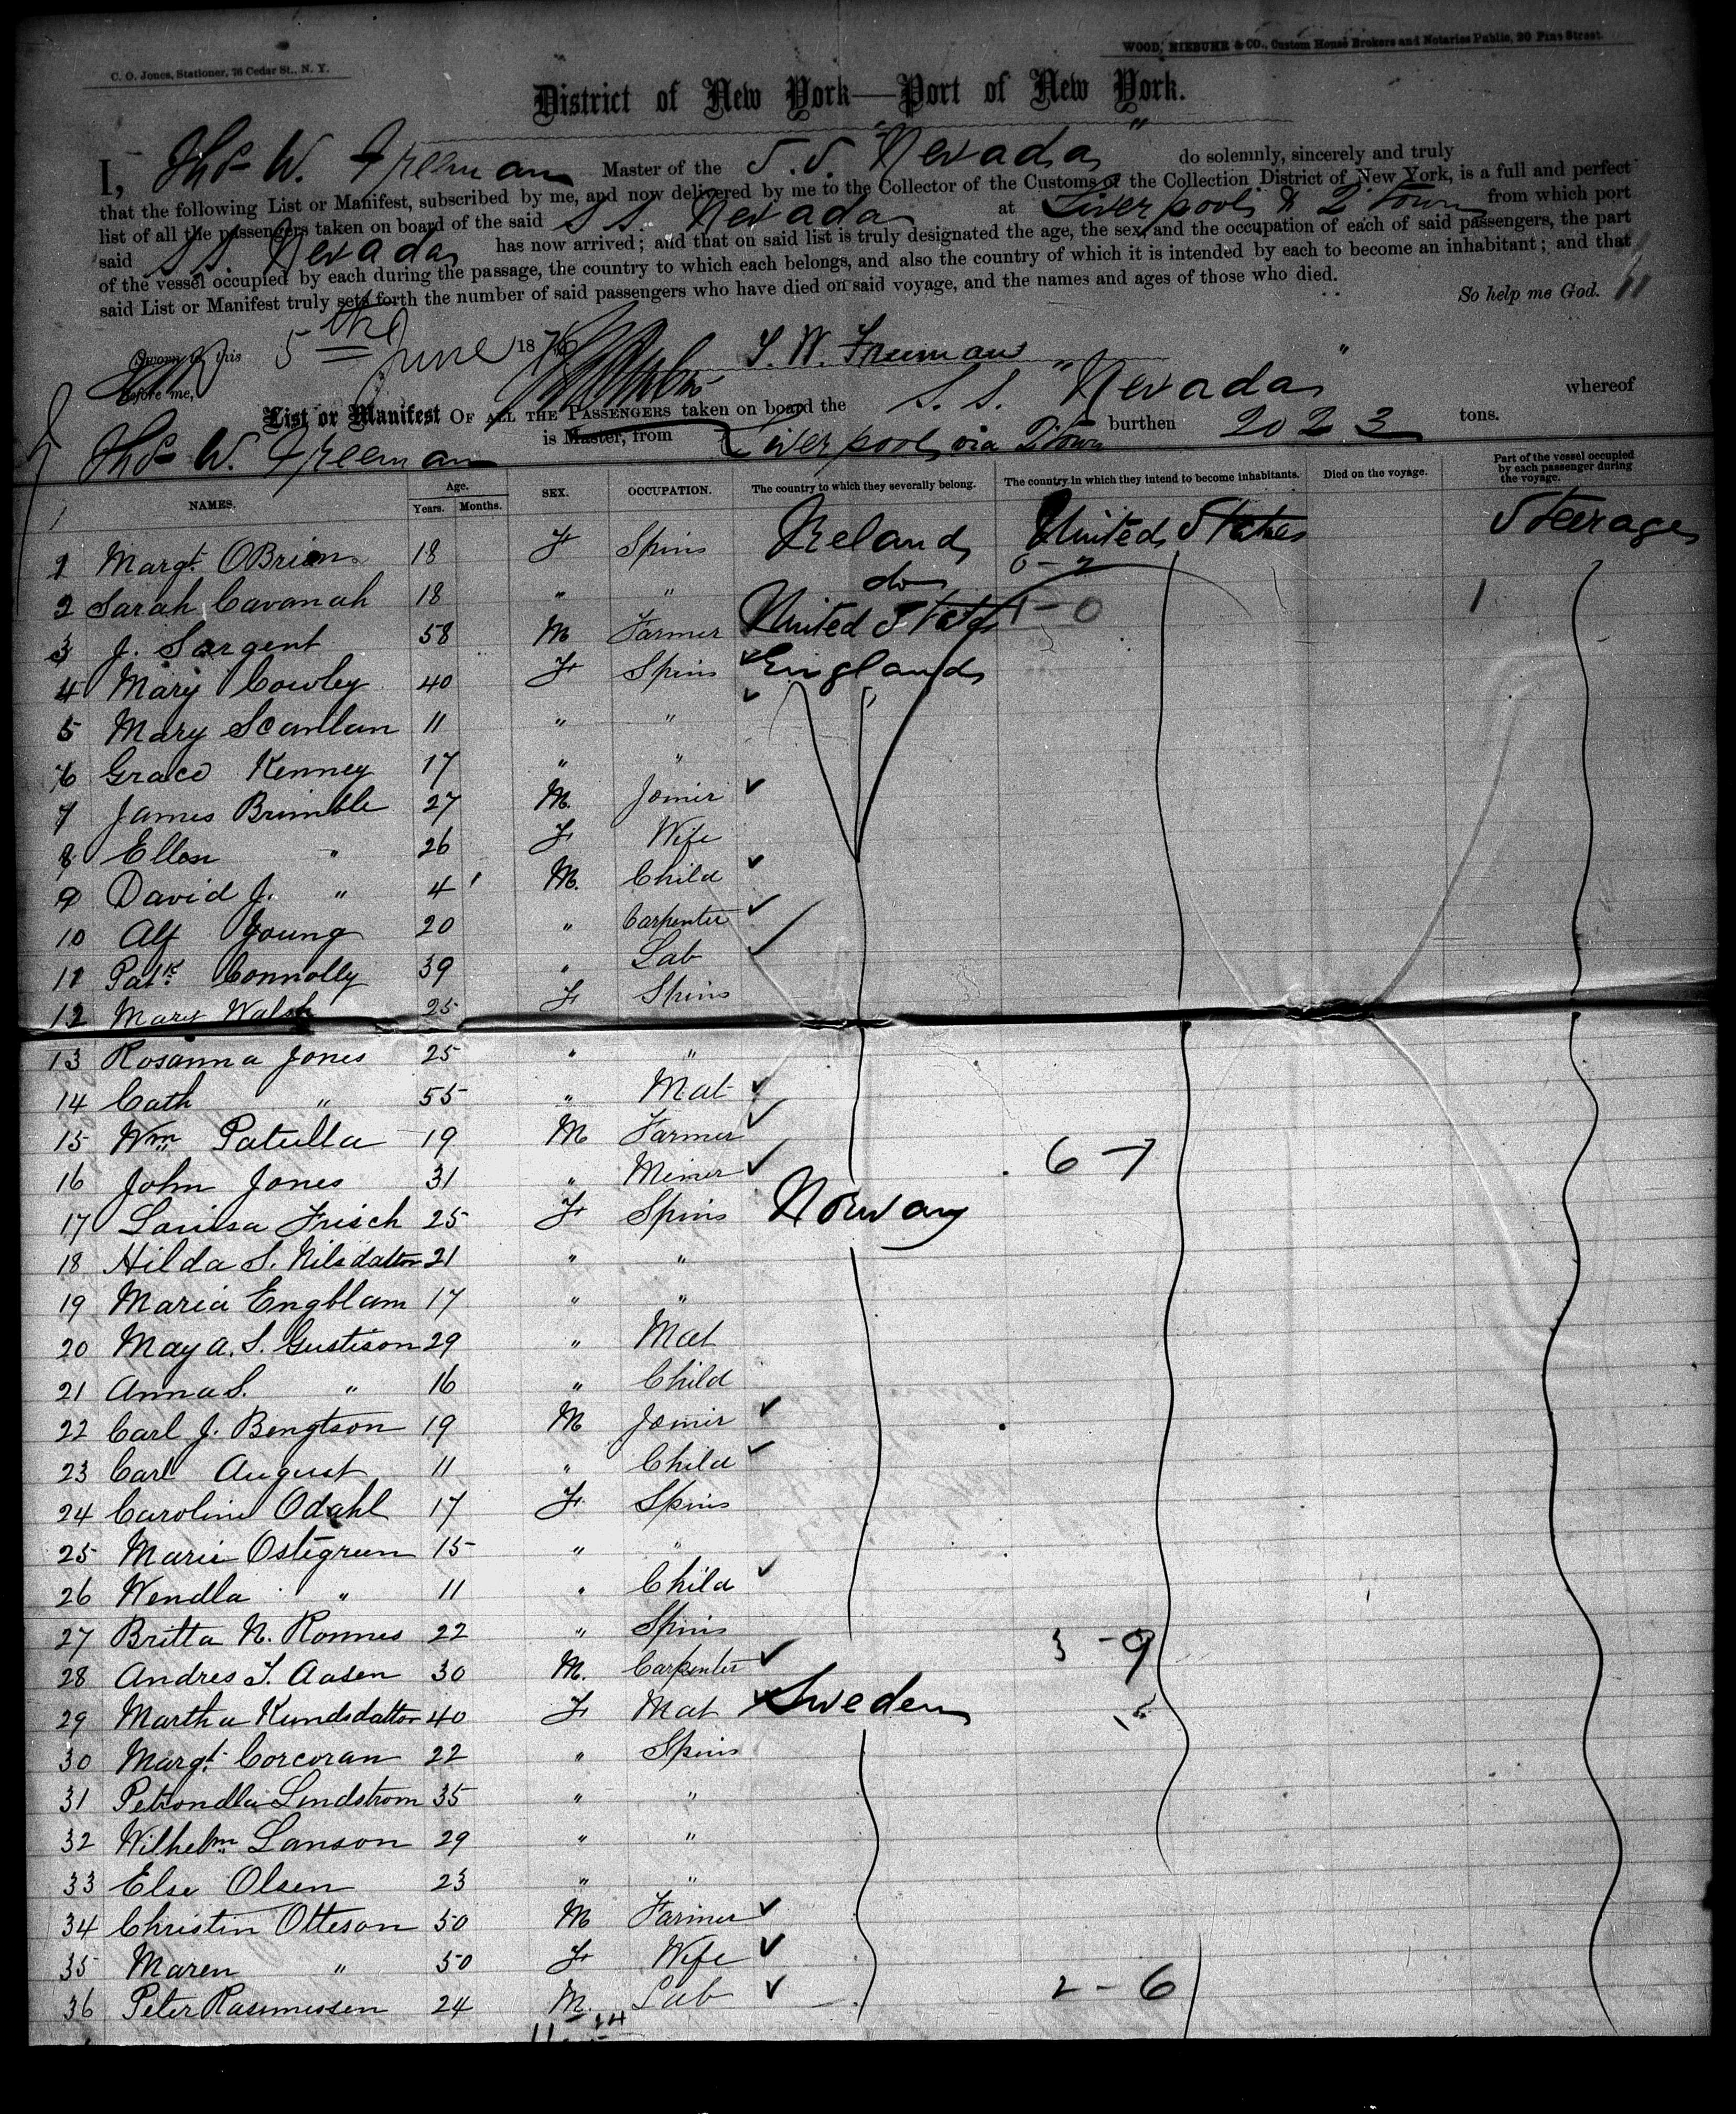 C. O. Jones, Stationer, 76 Cedar St., N. Y.
WOOD, NIEBUHR & CO., Custom House Brokers and Notaries Public, 20 Pine Street.
District of New York—Port of New York.
I, Thos W. Freeman Master of the S. S. "Nevada" do solemnly, sincerely and truly
that the following List or Manifest, subscribed by me, and now delivered by me to the Collector of the Customs of the Collection District of New York, is a full and perfect
list of all the passengers taken on board of the said S S. Nevada at Liverpool & Q. Town from which port
said S S. Nevada has now arrived; and that on said list is truly designated the age, the sex, and the occupation of each of said passengers, the part
of the vessel occupied by each during the passage, the country to which each belongs, and also the country of which it is intended by each to become an inhabitant; and that
said List or Manifest truly sets forth the number of said passengers who have died on said voyage, and the names and ages of those who died.
So help me God.
Sworn to this 5th June 187 T. W. Freeman
Before me,
List or Manifest OF ALL THE PASSENGERS taken on board the S. S. "Nevada" whereof
Thos W. Freeman is Master, from Liverpool via Q. town burthen 2023 tons.
NAMES. Age. Years. Months. SEX. OCCUPATION. The country to which they severally belong. The country in which they intend to become inhabitants. Died on the voyage. Part of the vessel occupied by each passenger during the voyage.
1 Margt. OBrien 18 F Spins Ireland United States Steerage
0-2
2 Sarah Cavanah 18 " " do 1
3 J. Sargent 58 M Farmer United States 1-0
4 Mary Cowley 40 F Spins England
5 Mary Scanlan 11 " "
6 Grace Kenney 17 " "
7 James Brimble 27 M. Joiner
8 Ellen " 26 F Wife
9 David J. " 4 M. Child
10 Alf Young 20 " Carpenter
11 Patk. Connolly 39 " Lab
12 Mary Walsh 25 F Spins
13 Rosanna Jones 25 " "
14 Cath " 55 " Mat
15 Wm Patulla 19 M Farmer
16 John Jones 31 " Miner 6-7
17 Louisa Frisch 25 F Spins Norway
18 Hilda S. Nilsdatter 21 " "
19 Maria Engblam 17 " "
20 May a. S. Gustison 29 " Mat
21 Anna S. " 16 " Child
22 Carl J. Bengtson 19 M Joiner
23 Carl August 11 " Child
24 Caroline Odahl 17 F Spins
25 Marie Ostegreen 15 " "
26 Wendla " 11 " Child
27 Britta N. Ronnes 22 " Spins 3-9
28 Andres T. Aasen 30 M. Carpenter
29 Martha Kundsdatter 40 F Mat Sweden
30 Margt. Corcoran 22 " Spins
31 Petrondla Lindstrom 35 " "
32 Wilhelm. Lanson 29 " "
33 Else Olsen 23 " "
34 Christin Otteson 50 M Farmer
35 Maren " 50 F Wife
36 Peter Rasmussen 24 M. Lab 2-6